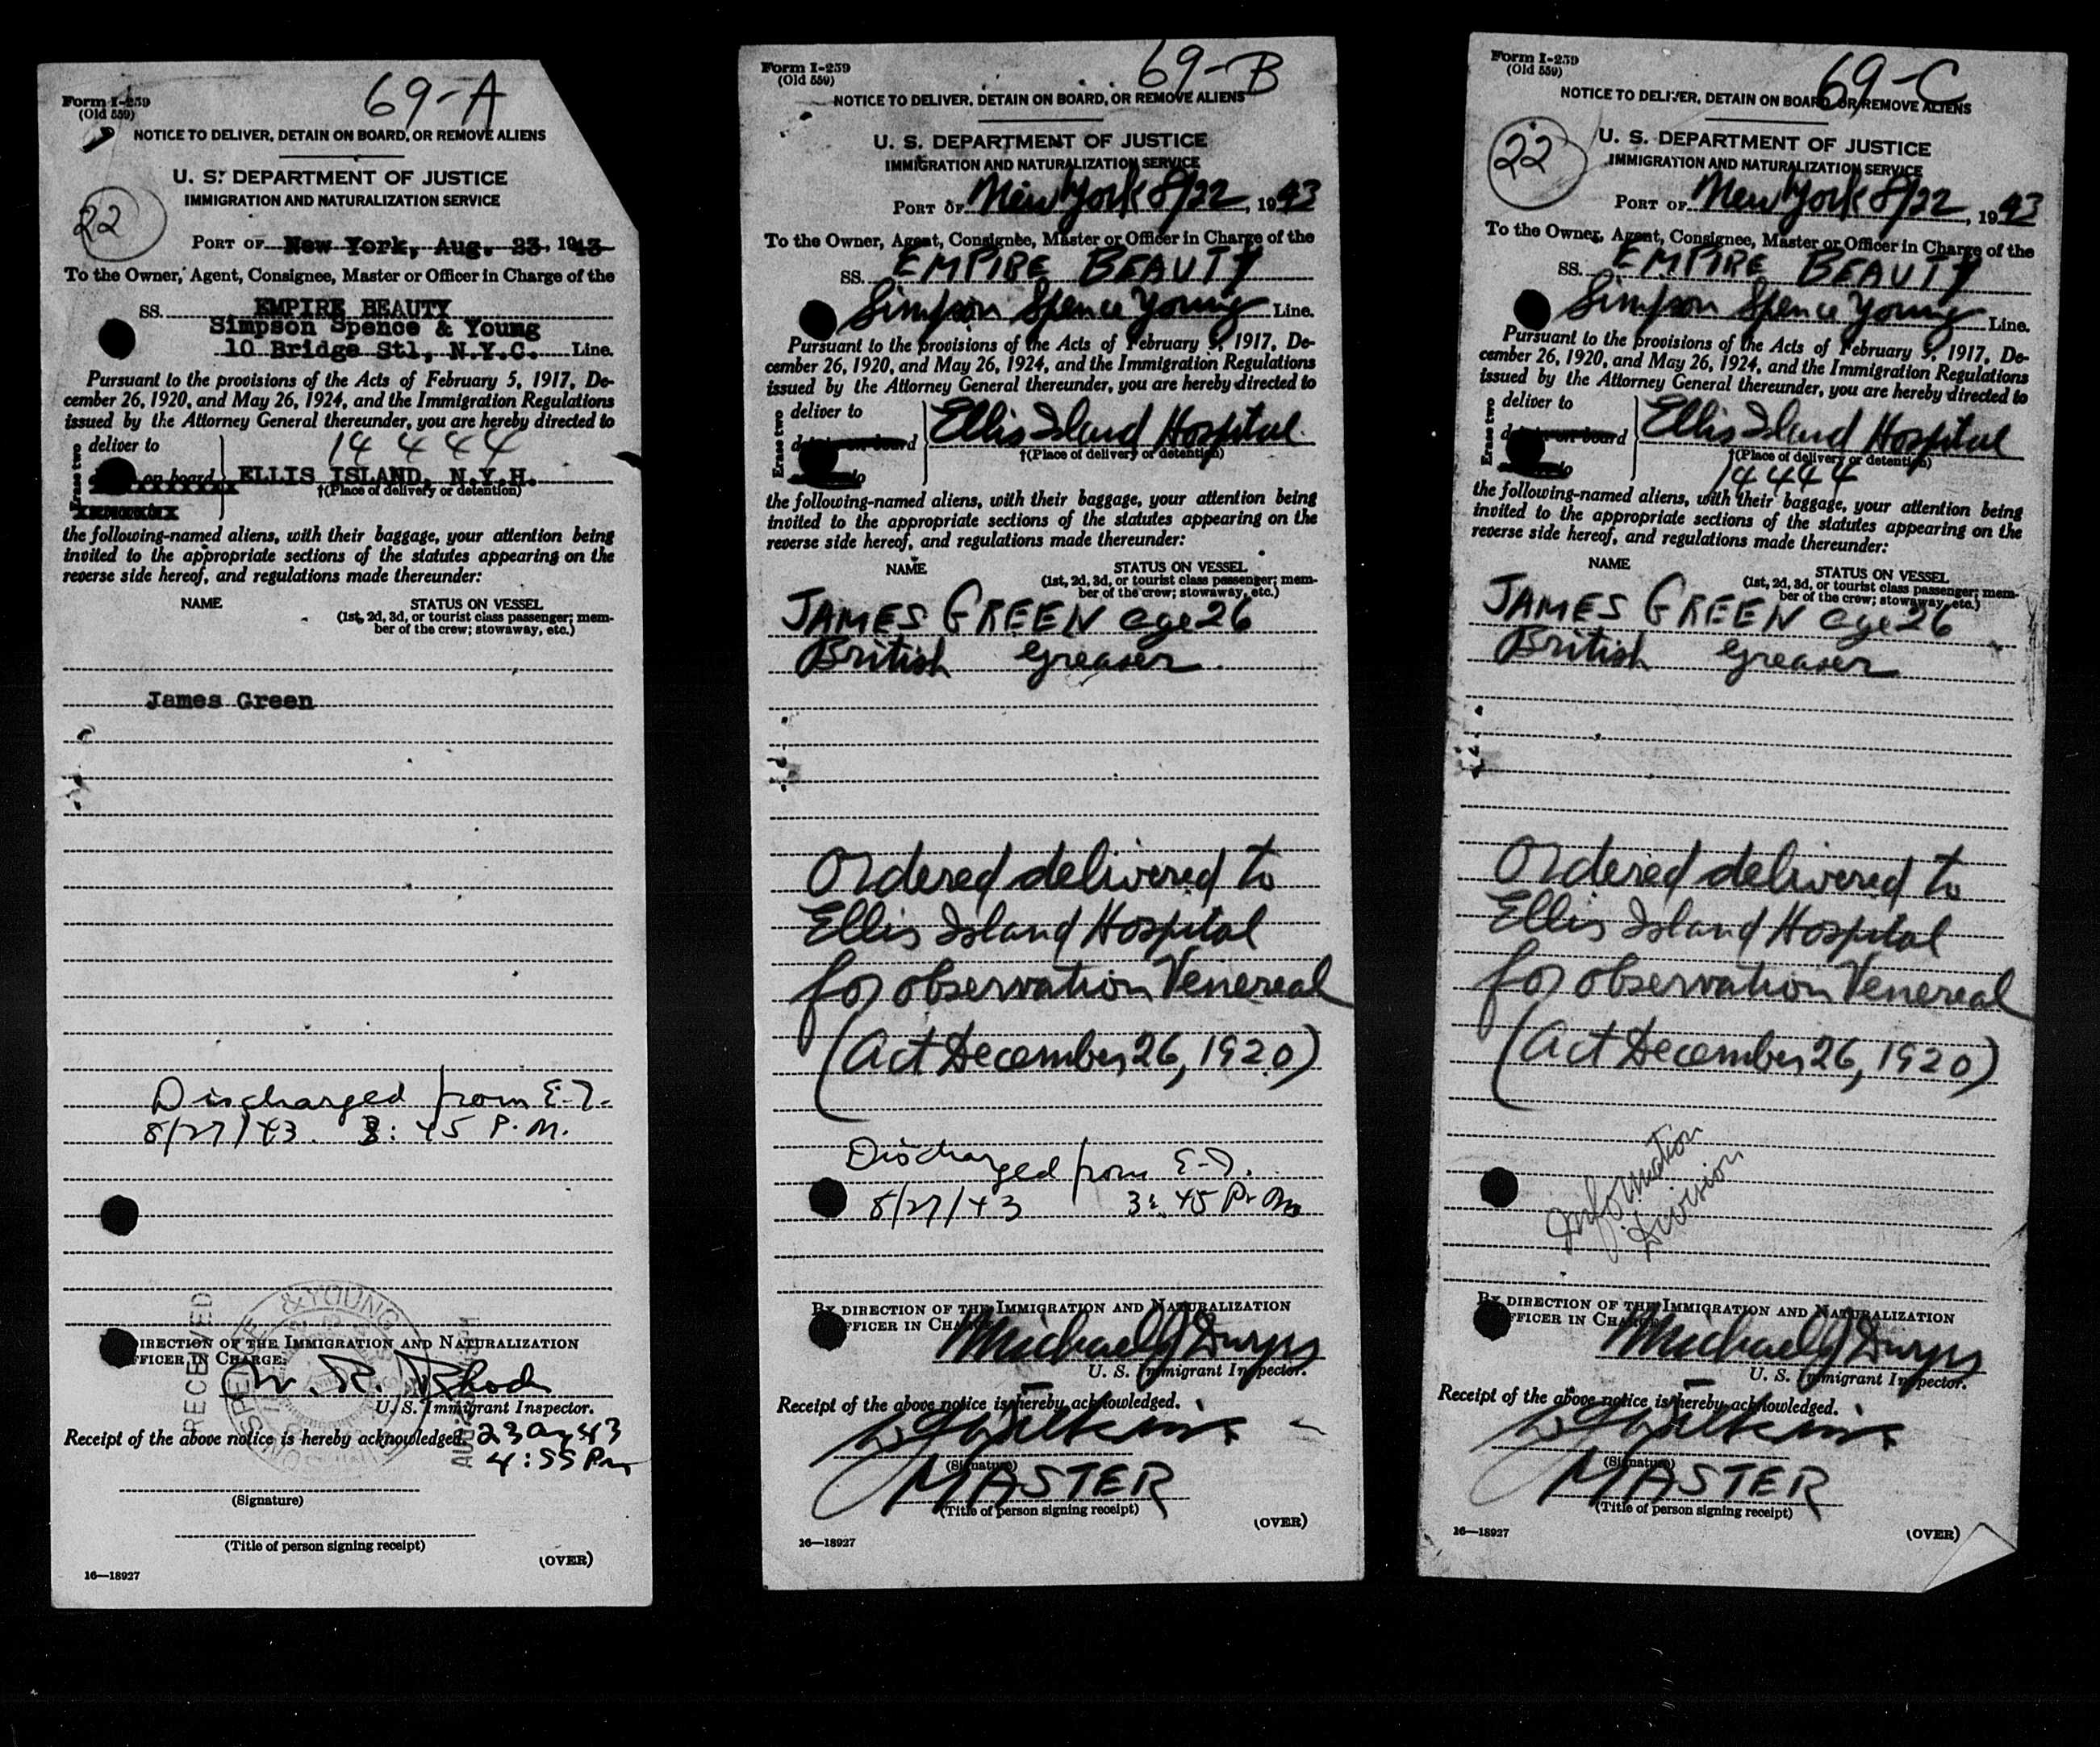 69-A
Form I-259
(Old 559)
NOTICE TO DELIVER, DETAIN ON BOARD, OR REMOVE ALIENS
U. S. DEPARTMENT OF JUSTICE
IMMIGRATION AND NATURALIZATION SERVICE
22
PORT OF New York, Aug. 23, 1943
To the Owner, Agent, Consignee, Master or Officer in Charge of the
SS. EMPIRE BEAUTY
Simpson Spence & Young
10 Bridge Stl, N.Y.C. Line.
Pursuant to the provisions of the Acts of February 5, 1917, De-
cember 26, 1920, and May 26, 1924, and the Immigration Regulations
issued by the Attorney General thereunder, you are hereby directed to
Erase two
deliver to
14444
on board
ELLIS ISLAND, N.Y.H.
†(Place of delivery or detention)
the following-named aliens, with their baggage, your attention being
invited to the appropriate sections of the statutes appearing on the
reverse side hereof, and regulations made thereunder:
NAME STATUS ON VESSEL
(1st, 2d, 3d, or tourist class passenger; mem-
ber of the crew; stowaway, etc.)
James Green
Discharged from E.I.
8/27/43. 3:45 P.M.
RECEIVED
SPENCE & YOUNG
DIRECTION OF THE IMMIGRATION AND NATURALIZATION
OFFICER IN CHARGE:
W. R. Rhode
U. S. Immigrant Inspector.
Receipt of the above notice is hereby acknowledged.
23 Aug 43
4:55 Pm
(Signature)
(Title of person signing receipt)
(OVER)
16—18927
69-B
Form I-259
(Old 559)
NOTICE TO DELIVER, DETAIN ON BOARD, OR REMOVE ALIENS
U. S. DEPARTMENT OF JUSTICE
IMMIGRATION AND NATURALIZATION SERVICE
PORT OF New York 8/22, 1943
To the Owner, Agent, Consignee, Master or Officer in Charge of the
SS. EMPIRE BEAUTY
Simpson Spence Young Line.
Pursuant to the provisions of the Acts of February 5, 1917, De-
cember 26, 1920, and May 26, 1924, and the Immigration Regulations
issued by the Attorney General thereunder, you are hereby directed to
Erase two
deliver to
on board
to
Ellis Island Hospital
†(Place of delivery or detention)
the following-named aliens, with their baggage, your attention being
invited to the appropriate sections of the statutes appearing on the
reverse side hereof, and regulations made thereunder:
NAME STATUS ON VESSEL
(1st, 2d, 3d, or tourist class passenger; mem-
ber of the crew; stowaway, etc.)
JAMES GREEN age 26
British Greaser
Ordered delivered to
Ellis Island Hospital
for observation Venereal
(Act December 26, 1920)
Discharged from E.I.
8/27/43 3:45 P.M.
BY DIRECTION OF THE IMMIGRATION AND NATURALIZATION
OFFICER IN CHARGE:
Michael J
U. S. Immigrant Inspector.
Receipt of the above notice is hereby acknowledged.
(Signature)
MASTER
(Title of person signing receipt)
(OVER)
16—18927
69-C
Form I-259
(Old 559)
NOTICE TO DELIVER, DETAIN ON BOARD, OR REMOVE ALIENS
22
U. S. DEPARTMENT OF JUSTICE
IMMIGRATION AND NATURALIZATION SERVICE
PORT OF New York 8/22, 1943
To the Owner, Agent, Consignee, Master or Officer in Charge of the
SS. EMPIRE BEAUTY
Simpson Spence Young Line.
Pursuant to the provisions of the Acts of February 5, 1917, De-
cember 26, 1920, and May 26, 1924, and the Immigration Regulations
issued by the Attorney General thereunder, you are hereby directed to
Erase two
deliver to
on board
to
Ellis Island Hospital
†(Place of delivery or detention)
14444
the following-named aliens, with their baggage, your attention being
invited to the appropriate sections of the statutes appearing on the
reverse side hereof, and regulations made thereunder:
NAME STATUS ON VESSEL
(1st, 2d, 3d, or tourist class passenger; mem-
ber of the crew; stowaway, etc.)
JAMES GREEN age 26
British Greaser
Ordered delivered to
Ellis Island Hospital
for observation Venereal
(Act December 26, 1920)
Information
Division
BY DIRECTION OF THE IMMIGRATION AND NATURALIZATION
OFFICER IN CHARGE:
Michael J
U. S. Immigrant Inspector.
Receipt of the above notice is hereby acknowledged.
(Signature)
MASTER
(Title of person signing receipt)
(OVER)
16—18927